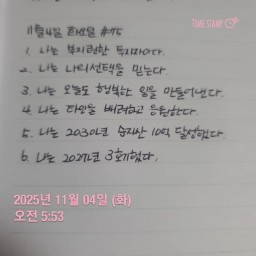 TIMESTAMP
11월 4일 화요일 #75
1. 나는 부지런한 투자자이다.
2. 나는 나의 선택을 믿는다.
3. 나는 오늘도 행복한 일을 만들어낸다.
4. 나는 타인을 배려하고 응원한다.
5. 나는 2030년 순자산 10억 달성했다.
6. 나는 2027년 3호기했다.
2025년 11월 04일 (화)
오전 5:53